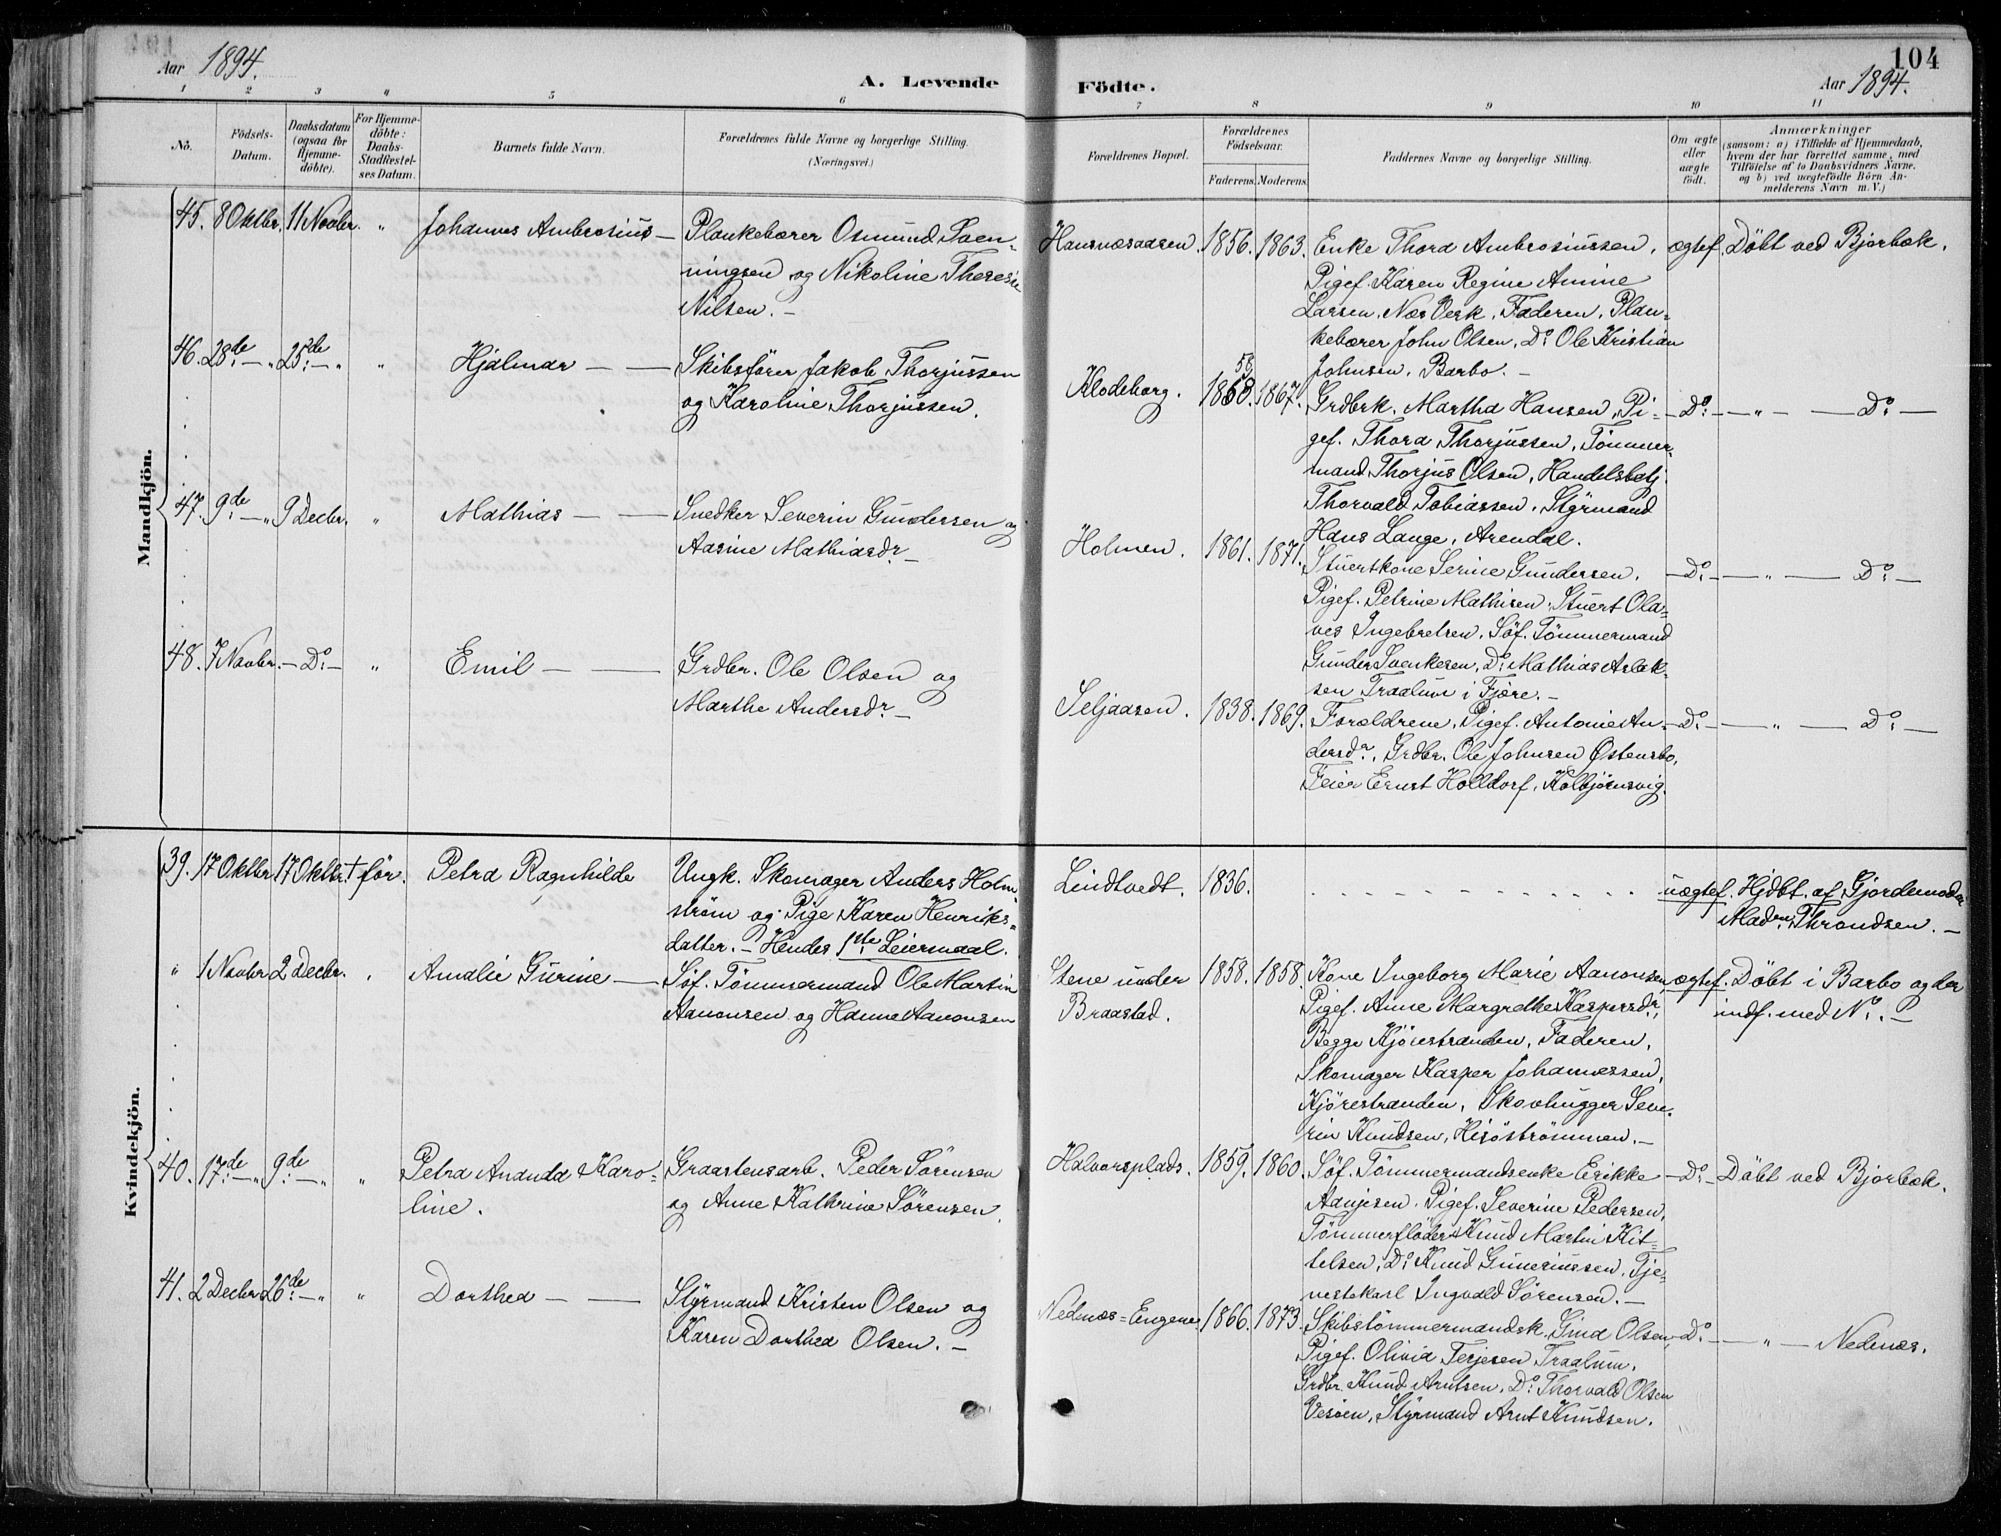 Aar 1894.
A. Levende
Födte.
104
Aar 1894.
1 2 3 " 5 6 7 8 9 10 11
No.
Födsels-
Datum.
Daabsdatum
(ogsaa for
Hjemme-
döbte).
For Hjemme-
döbte:
Daabs-
Stadfæstel-
ses Datum.
Barnets fulde Navn.
Forældrenes fulde Navne og borgerlige Stilling.
(Næringsvei.)
Forældrenes Bopæl.
Forældrenes
Födselsaar.
Faderens. Moderens.
Faddernes Navne og borgerlige Stilling.
Om ægte
eller
uægte
födt.
Anmærkninger
(saasom: a) i Tilfælde af Hjemmedaab,
hvem der har forrettet samme, med
Tilföielse af to Daabsvidners Navne.
og b) ved uægtefödte Börn An-
melderens Navn m. V.)
Mandkjön.
45. 8 Oktbr. 11 Novbr. " Johannes Ambrosius —
Plankebærer Osmund Sven-
ningsen og Nikoline Theresie
Nilsen. —
Hansnæsaasen. 1856. 1863.
Enke Thora Ambrosiussen,
Pigef. Karen Regine Amine
Larsen, Næs Verk, Faderen, Plan-
kebærer John Olsen, Do Ole Kristian
Johnsen, Barbo. —
ægtef. Döbt ved Bjorbæk.
46. 28de — " 25de — " " Hjalmar — —
Skibsförer Jakob Thorjussen
og Karoline Thorjussen.
Klodeborg. 1858. 59 1867.
Grdbrk. Martha Hansen, Pi-
gef. Thora Thorjussen, Tömmer-
mand Thorjus Olsen, Handelsbetj.
Thorvald Tobiassen, Styrmand
Hans Lange, Arendal.
— Do — — " — — Do —
47. 9de — " 9 Decbr. " Mathias — —
Snedker Severin Gundersen og
Aasine Mathiasdr —
Holmen. 1861. 1871.
Stuertkone Serine Gundersen,
Pigef. Petrine Mathisen, Stuert Ola-
ves Ingebretsen, Söf. Tömmermand
Gunder Svenkesen, Do Mathias Aslak-
sen Traalum i Fjære. —
— Do — — " — — Do —
48. 7 Novbr. — Do — " Emil — —
Grdbr. Ole Olsen og
Marthe Andersdr —
Seljaasen. 1838. 1869.
Forældrene, Pigef. Antonie An-
dersdr, Grdbr. Ole Johnsen Østensbo,
Feier Ernst Holldorf, Kolbjörnsvig.
— Do — — " — — Do —
Kvindekjön.
39. 17 Oktbr. 17 Oktbr. † för. Petra Ragnhilde
Ungk. Skomager Anders Holm-
ström og Pige Karen Henriks-
datter. — Hendes 1ste Leiermaal.
Lindtvedt. 1836.
uægtef. Hjdbt. af Gjordemoder
Madm. Throndsen. —
" 1 Novbr. 2 Decbr. " Amalie Gurine —
Söf. Tömmermand Ole Martin
Aanonsen og Hanna Aanonsen
Stene under
Braastad.
1858. 1858.
Kone Ingeborg Marie Aanonsen,
Pigef. Anne Margrethe Kaspersdr,
Begge Kjörestranden, Faderen,
Skomager Kasper Johannessen,
Kjörestranden, Skovhugger Seve-
rin Knudsen, Hisöströmmen. —
ægtef. Döbt i Barbo og der
indf. med No. —
40. 17de — " 9de — " " Petra Ananda Karo-
line.
Graastensarb. Peder Sörensen
og Anne Kathrine Sörensen.
Halvorsplads. 1859. 1860.
Söf. Tömmermandsenke Erikke
Aanjesen, Pigef. Severine Pedersen,
Tömmerfløder Knud Martin Kit-
telsen, Do Knud Guneriussen, Tje-
nestekarl Ingvald Sörensen. —
— Do — Döbt ved Bjorbæk.
41. 2 Decbr. 26de — " " Dorthea — —
Styrmand Kristen Olsen og
Karen Dorthea Olsen. —
Nedenæs-Engene. 1866. 1873.
Skibstömmermandsk. Gina Olsen,
Pigef. Olivia Terjesen Traalum,
Grdbr. Knud Arntsen, Do Thorvald Olsen
Vesöen, Styrmand Arnt Knudsen.
Do — — " — Nedenæs.